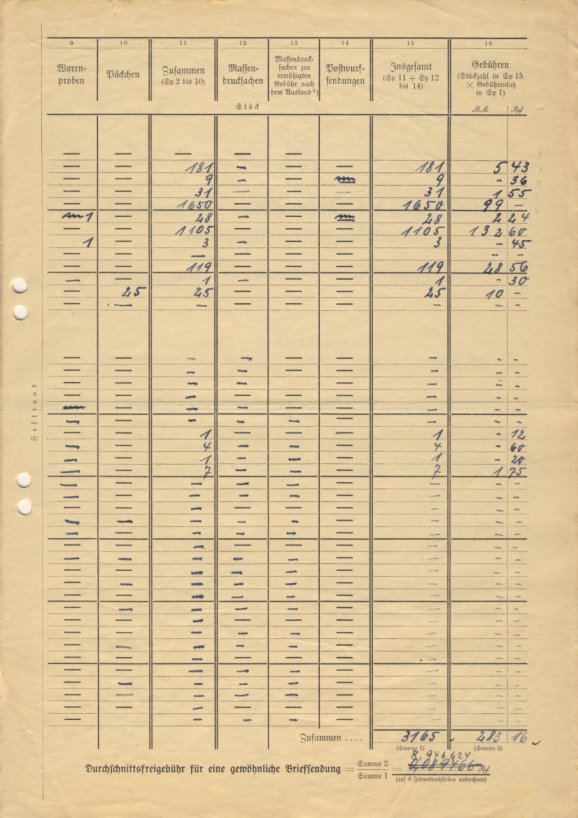 9 10 11 12 13 14 15 16
Waren-
proben
Päckchen
Zusammen
(Sp 2 bis 10)
Massen-
drucksachen
Massendruck-
sachen zur
ermäßigten
Gebühr nach
dem Ausland
Postwurf-
sendungen
Insgesamt
(Sp 11 + Sp 12
bis 14)
Gebühren
(Stückzahl in Sp 15
× Gebührensatz
in Sp 1)
Stück
RM Rpf
— — — — — — — - -
— — 181 - — — 181 5 43
— — 9 - — 9 - 36
— — 31 — — — 31 1 55
— — 1650 — — — 1650 99 -
1 — 28 - — 28 2 24
— — 1105 — — — 1105 132 60
1 — 3 - — — 3 - 45
— — — — — — — - -
— — 119 — — — 119 28 56
— — 1 - — — 1 - 30
— 25 25 — — — 25 10 -
— — - — — — - - -
— — 1 — — — 1 - 12
- — 4 - - — 4 - 60
- — 1 - - — 1 - 20
- — 7 — - — 7 1 75
Heftrand
Zusammen .... 3165 283 16
(Summe 1) (Summe 2)
8,946624
Durchschnittsfreigebühr für eine gewöhnliche Briefsendung = Summe 2 / Summe 1 =
(auf 6 Zehnerbruchstellen ausrechnen)